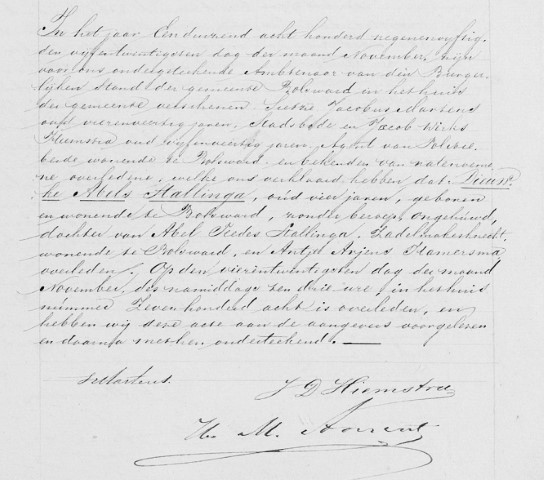 In het jaar Een duizend acht honderd negenenvyftig,
den vyfentwintigsten dag der maand November, zijn
voor ons ondergeteekende Ambtenaar van den Burger
lijken Stand der gemeente Bolsward in het huis
der gemeente verschenen Jacobus Martens
oud vierenveertig jaren, Stadsbode en Jacob
Hiemstra oud vyfenveertig jaren, Agent van Policie
beide wonende te Bolsward, en bekenden van natenoem
ne overledene, welke ons verklaard hebben dat
ke Abels Stallinga, oud vier jaren, geboren
en wonende te Bolsward, zonder beroep, ongehuwd,
dochter van Abel Stallinga, Zadelmakersknecht,
wonende te Bolsward, en Antje Arjens Kamersma
overleden. Op den vierentwintigsten dag der maand
November, des namiddags ten drie ure, in het huis
nummer Zevenhonderd acht is overleden, en
hebben wij deze acte aan de aangevers voorgelezen
en daarna met hen onderteekend.
JMartens.
J D Hiemstra
M.